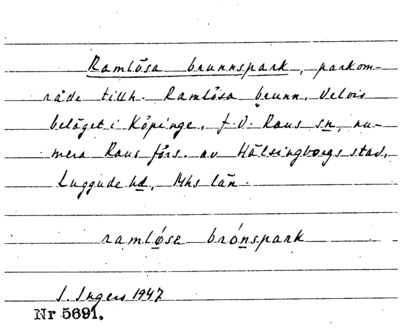 Ramlösa brunnspark, parkom-
råde tillh. Ramlösa brunn. Delvis
beläget i Köpinge, f.d. Raus sn, nu-
mera Raus förs. av Hälsingborgs stad,
Luggude hd, Mhs län.
ramlǿsa brónspark
I. Ingers 1947
Nr 5691.